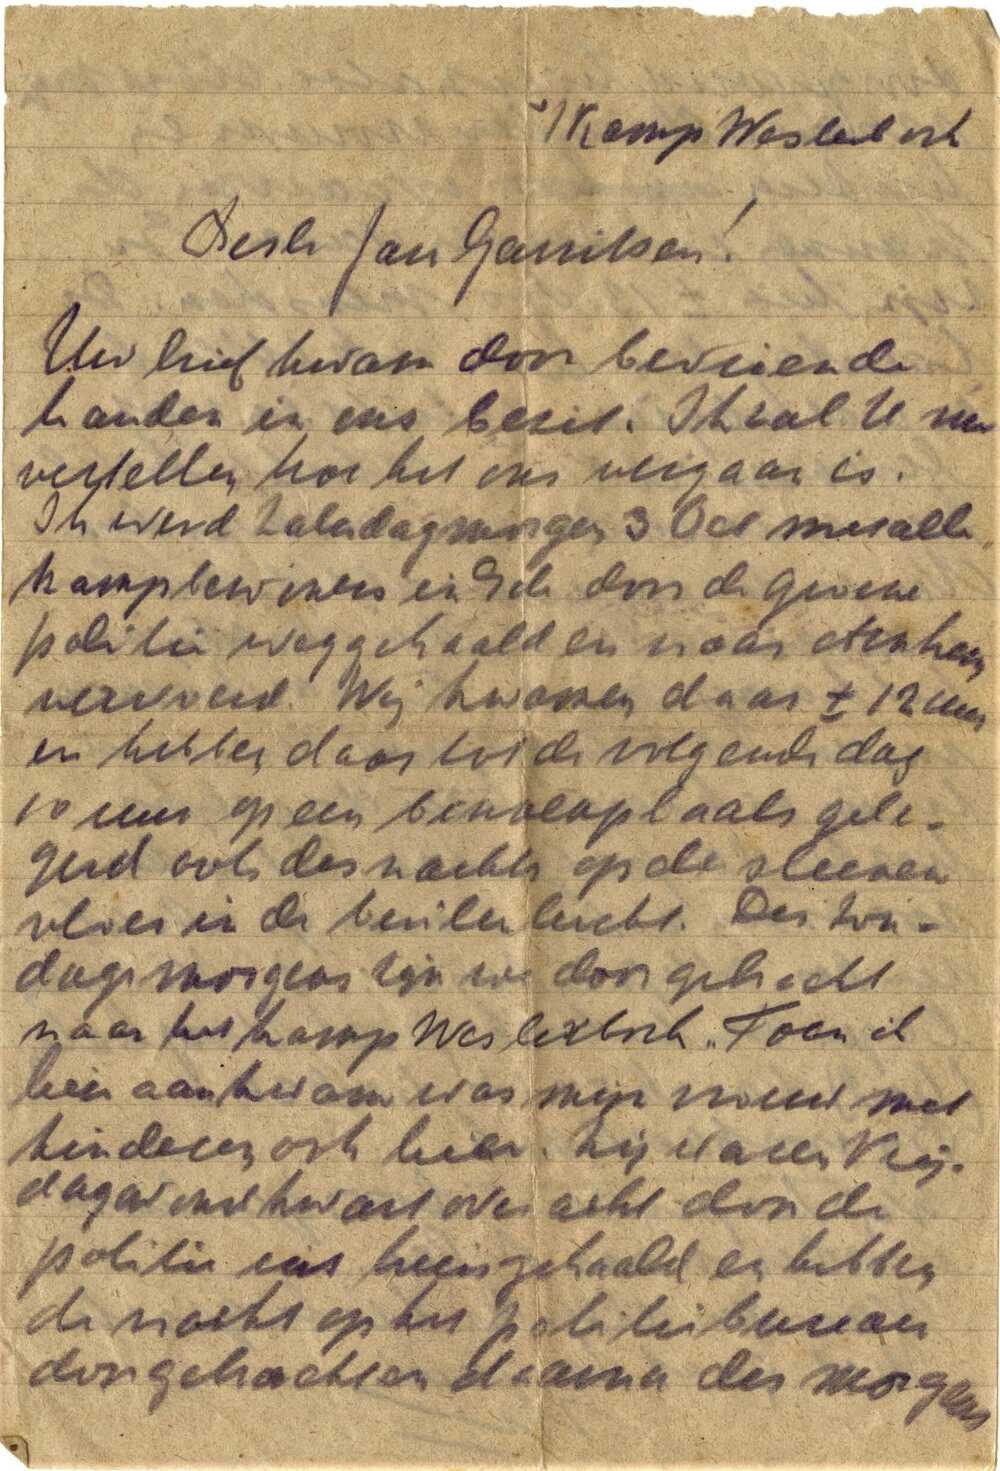 Kamp Westerbork
Beste Jan Gerritsen!
Uw brief kwam door bevriende
handen in ons bezit. Ik zal U nu
vertellen hoe het ons vergaan is.
Ik werd Zaterdagmorgen 3 Oct met alle
kampbewoners in Ede door de groene
politie weggehaald en naar Arnhem
vervoerd. Wij kwamen daar ± 12 uur
en hebben daar tot de volgende dag
10 uur op een binnenplaats gele-
gerd ook des nachts op de steenen
vloer in de buitenlucht. Des Zon-
dagsmorgens zijn we doorgebracht
naar het kamp Westerbork. Toen ik
hier aankwam was mijn vrouw met
kinderen ook hier. Zij waren Vrij-
dagavond kwart over acht door de
politie uit huis gehaald en hebben
de nacht op het politiebureau
doorgebracht en daarna des morgens